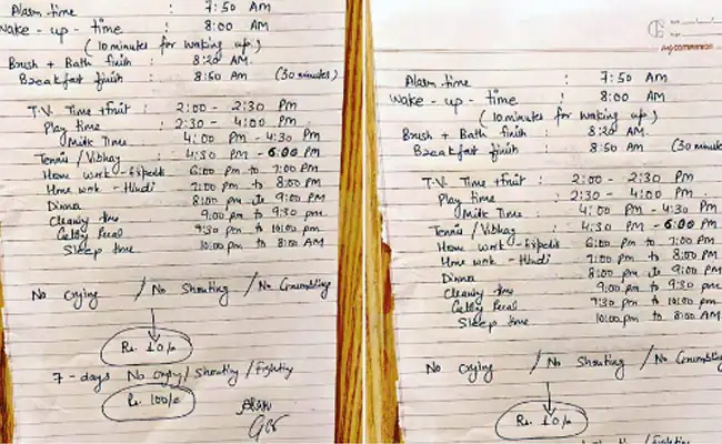 Alarm time : 7:50 AM
Wake - up - time : 8:00 AM
(10 minutes for waking up)
Brush + Bath finish : 8:20 AM.
Breakfast finish : 8:50 AM (30 minutes)
T.V. Time + fruit : 2:00 - 2:30 PM
Play time : 2:30 - 4:00 PM
Milk Time : 4:00 PM - 4:30 PM
Tennis / Vibhav : 4:30 PM - 6:00 PM
Home work - : 6:00 PM to 7:00 PM
Home work - Hindi : 7:00 pm to 8:00 PM
Dinner : 8:00 pm to 9:00 PM
Cleaning time 9:00 pm to 9:30 pm
9:30 pm to 10:00 pm
Sleep time 10:00 pm to 8:00 AM
No Crying / No Shouting / No Grumbling
Rs. 10/-
7 - days No crying / Shouting / Fighting
Rs. 100/-
Alarm time : 7:50 AM
Wake - up - time : 8:00 AM
(10 minutes for waking up)
Brush + Bath finish : 8:20 AM.
Breakfast finish : 8:50 AM (30
T.V. Time + fruit : 2:00 - 2:30 PM
Play time : 2:30 - 4:00 PM
Milk Time : 4:00 PM - 4:30 PM
Tennis / Vibhav : 4:30 PM - 6:00 PM
Home work - : 6:00 PM to 7:00 PM
Home work - Hindi : 7:00 pm to 8:00 PM
Dinner : 8:00 pm to 9:00 PM
Cleaning time 9:00 pm to 9:30 pm
9:30 pm to 10:00 pm
Sleep time 10:00 pm to 8:00 AM
No Crying / No Shouting / No
Rs. 10/-